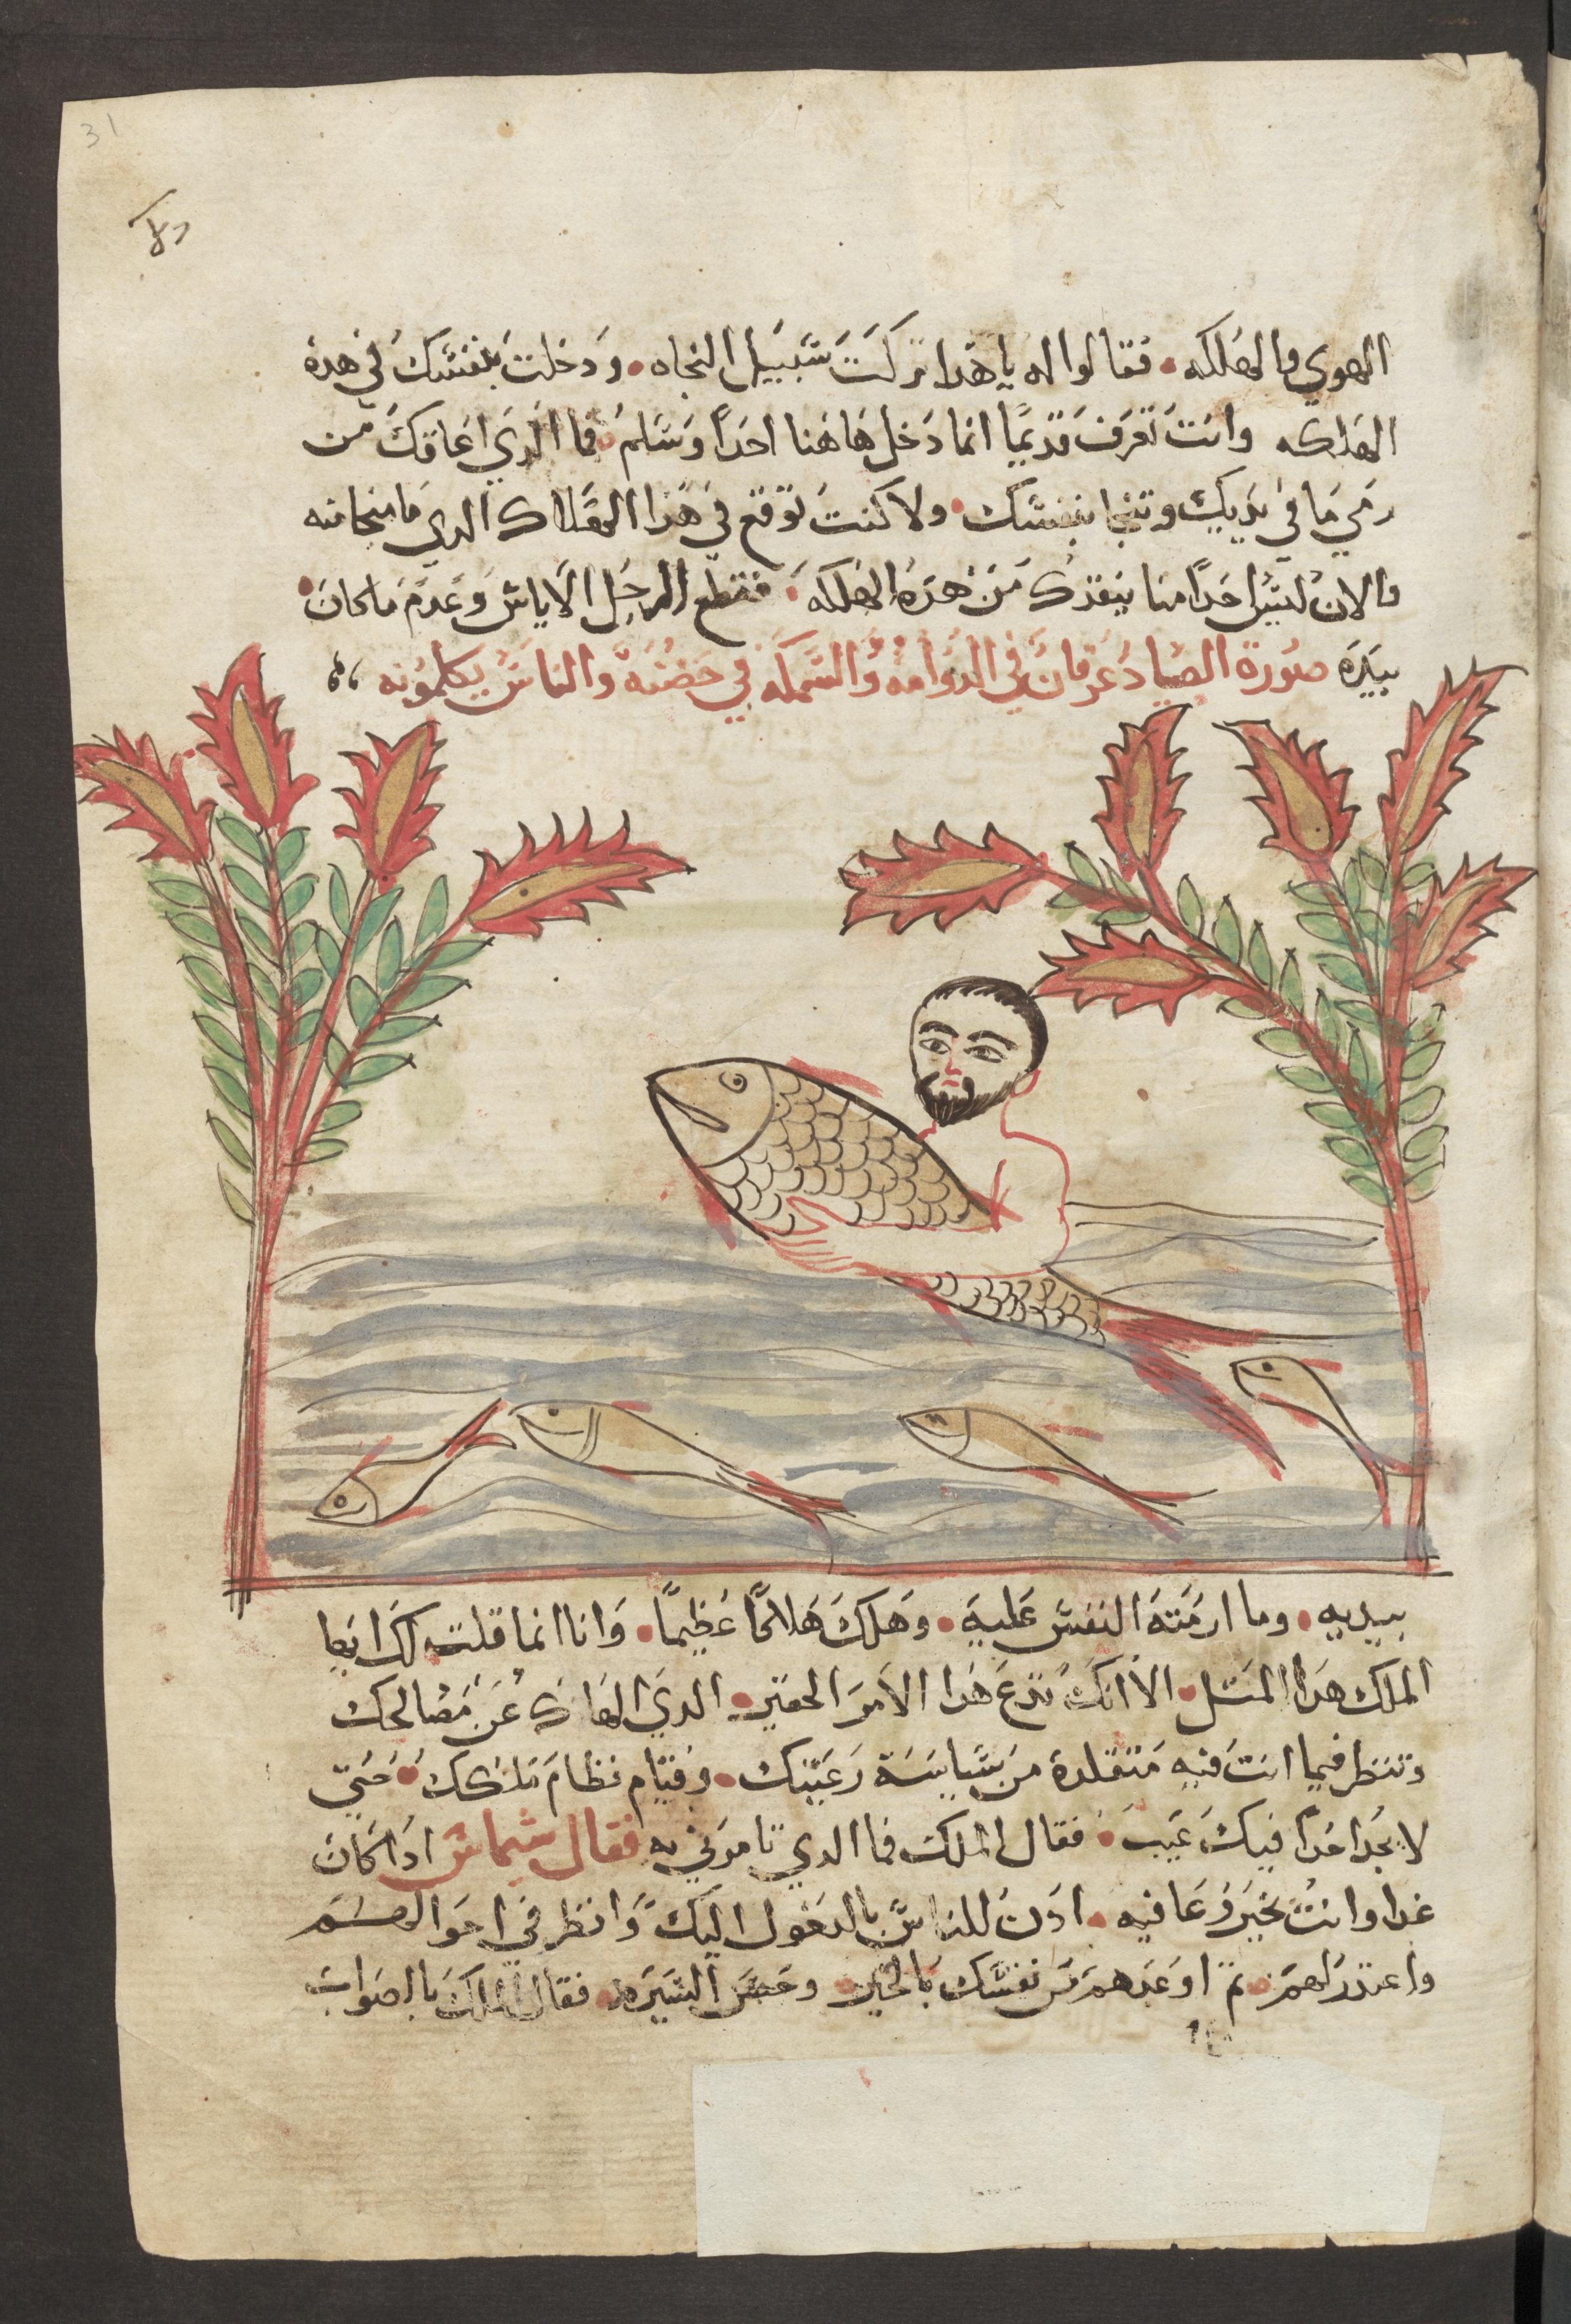 31
الهوي والهلكه • فقالوا له يا هذا تركت سبيل النجاه • ودخلت بنفسك في هده
الهلاكه وانت تعرف قديما انما دخل هاهنا احدا وسلم • فما الدي اعاقك من
رمي ما في يديك وتنجا بنفسك • ولا كنت توقع في هذا الهلاك الدي ما ينجا منه
والان ليس احدا منا ينقدك من هده الهلكه • فقطع الرجل الاياس وعدم ما كان •
بيده صورة الصياد غرقان في الدوامه والسمكه في حضنه والناس يكلمونه
بيديه • وما ارمته النفس عليه • وهلك هلاكا عظيما • وانا انما قلت لك ايها
الملك هدا المتل • الا انك تدع هدا الامر الحقير • الدي الهاك عن مصالحك
وتنظر فيما انت فيه متقلدة من سياسة رعيتك • وقيام نظام ملكك • حتي
لا يجد احدا فيك عيب • فقال الملك فما الدي تامرني به فقال شماس ادا كان
غدا وانت بخير وعافيه • ادن للناس بالدخول اليك وانظر في احوالهم
واعتدر لهم • تم اوعدهم من نفسك بالخير • وحسن السيره • فقال الملك بالصواب